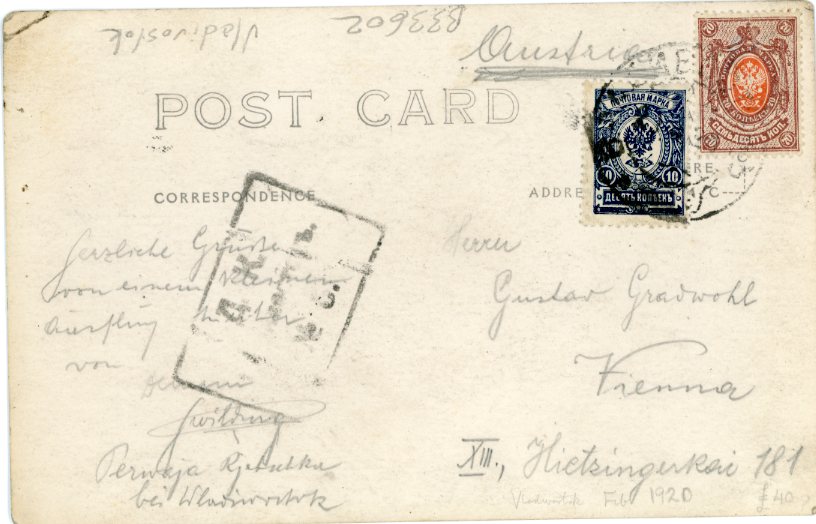 Vladivostok
833602
Austria
POST CARD
ПОЧТОВАЯ МАРКА
70
70 КОПѢЕКЪ
СЕМЬДЕСЯТЪ КОП.
ПОЧТОВАЯ МАРКА
10 10
ДЕСЯТЬ КОПѢЕКЪ
CORRESPONDENCE
ADDRE
RE
Herzliche Grüsse
von einem kleinen
Ausflug
von
Deinem
Perwaja Rjetschka
bei Wladiwostok
Herrn
Gustav Gradwohl
Vienna
XIII., Hietzingerkai 181
Vladivostok Feb 1920
£40